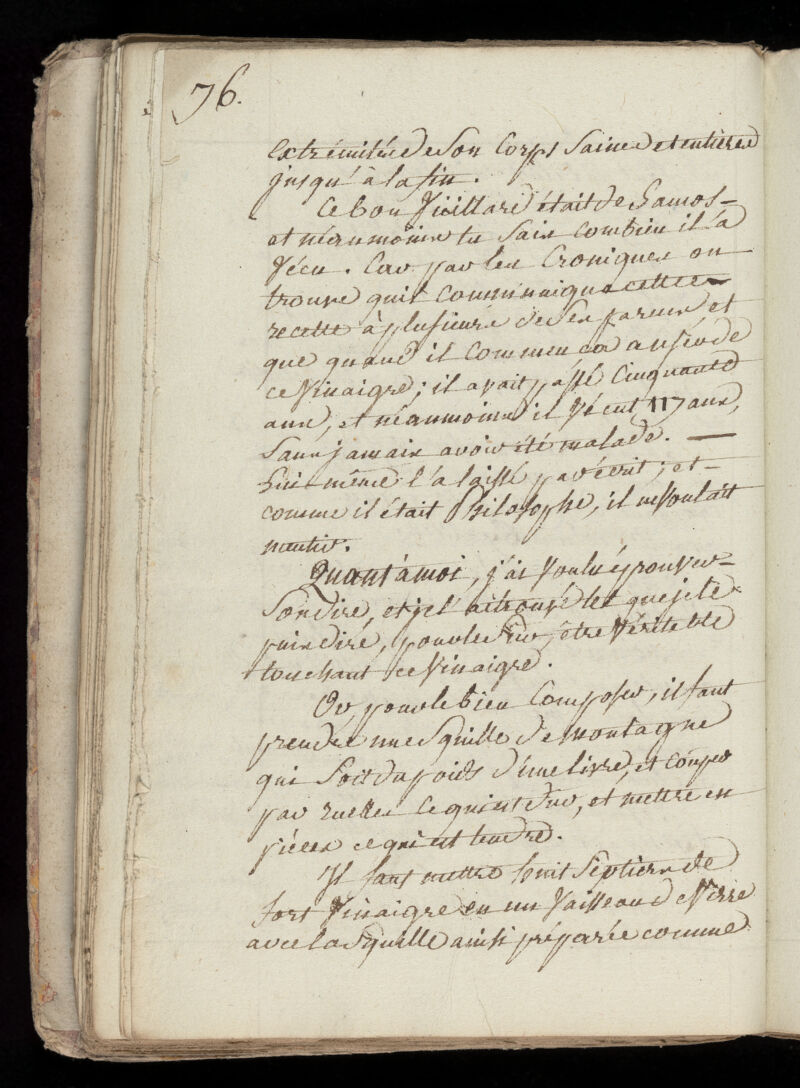 76.
extrémités de son Corps Saines et entières
jusqu'à la fin.
Ce bon Viellard était de Samos
et néanmoins tu sais combien il a
Vécu. Car par les Croniques on
trouve qu'il communiqua cette
recette à plusieurs de ses parens, et
que quand il commença a user de
ce Vinaigre; il avait passé Cinquante
ans, et néanmoins il Vécut 117 ans,
Sans jamais avoir été malade. —
Lui-même l'a laissé par écrit; et
comme il était Philosophe, il ne voulait
mentir.
Quant à moi, j'ai voulu éprouver
Son dire, et je l'ai trouvé tel que je le
puis dire, pour le Sur, être Véritable
touchant ce Vinaigre.
Or, pour le bien Composer, il faut
prendre une Squille de montagne
qui Soit du poids d'une livre, et couper
par ruelles ce qui est dur, et mettre en
pièces ce qui est tendre.
Il faut mettre huit Septiers de
fort Vinaigre en un Vaisseau de Verre
avec la Squille ainsi préparée comme